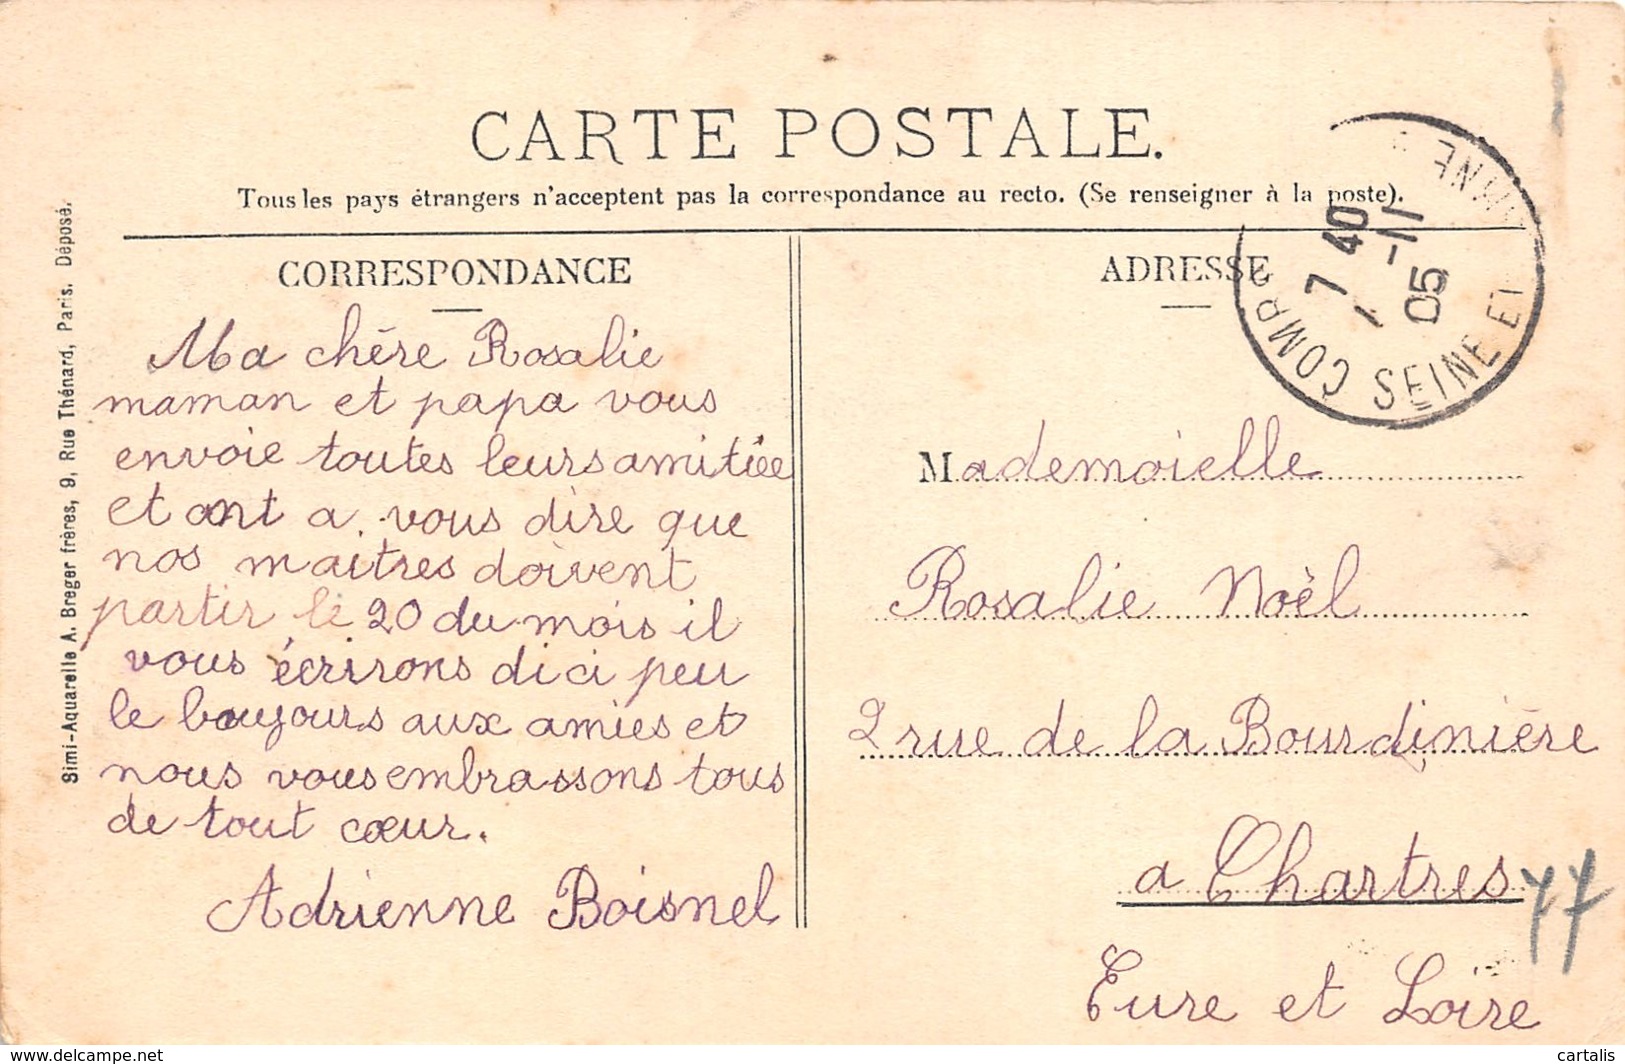 CARTE POSTALE.
Tous les pays étrangers n'acceptent pas la correspondance au recto. (Se renseigner à la poste).
CORRESPONDANCE
Ma chère Rosalie
maman et papa vous
envoie toutes leurs amitiée
et ont a vous dire que
nos maitres doivent
partir le 20 du mois il
vous écrirons dici peu
le boujours aux amies et
nous vous embrassons tous
de tout cœur.
Adrienne Boisnel
ADRESSE
Mademoielle
Rosalie Noèl
2 rue de la Bourdinière
a Chartres
Eure et Loire
77
COMB
SEINE ET
7 40
7 -11
05
Simi-Aquarelle A. Breger frères, 9, Rue Thénard, Paris. Déposé.
delcampe.net
cartalis